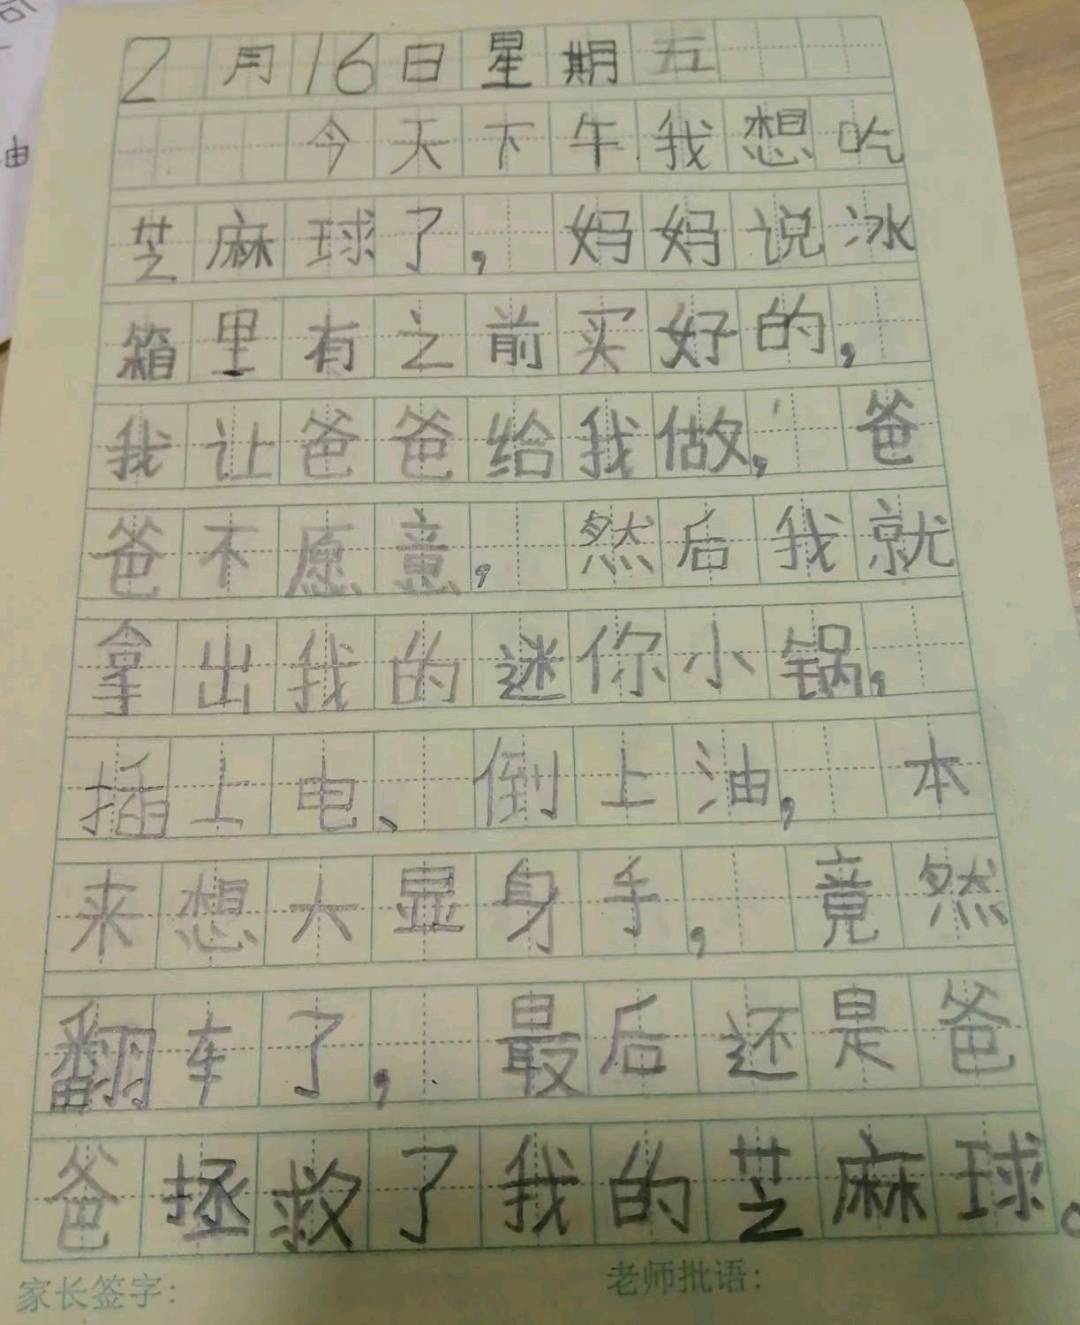 2月16日星期五
今天下午我想吃
芝麻球了，妈妈说冰
箱里有之前买好的，
我让爸爸给我做，爸
爸不愿意，然后我就
拿出我的迷你小锅，
插上电、倒上油，本
来想大显身手，竟然
翻车了，最后还是爸
爸拯救了我的芝麻球。
家长签字： 老师批语：
油